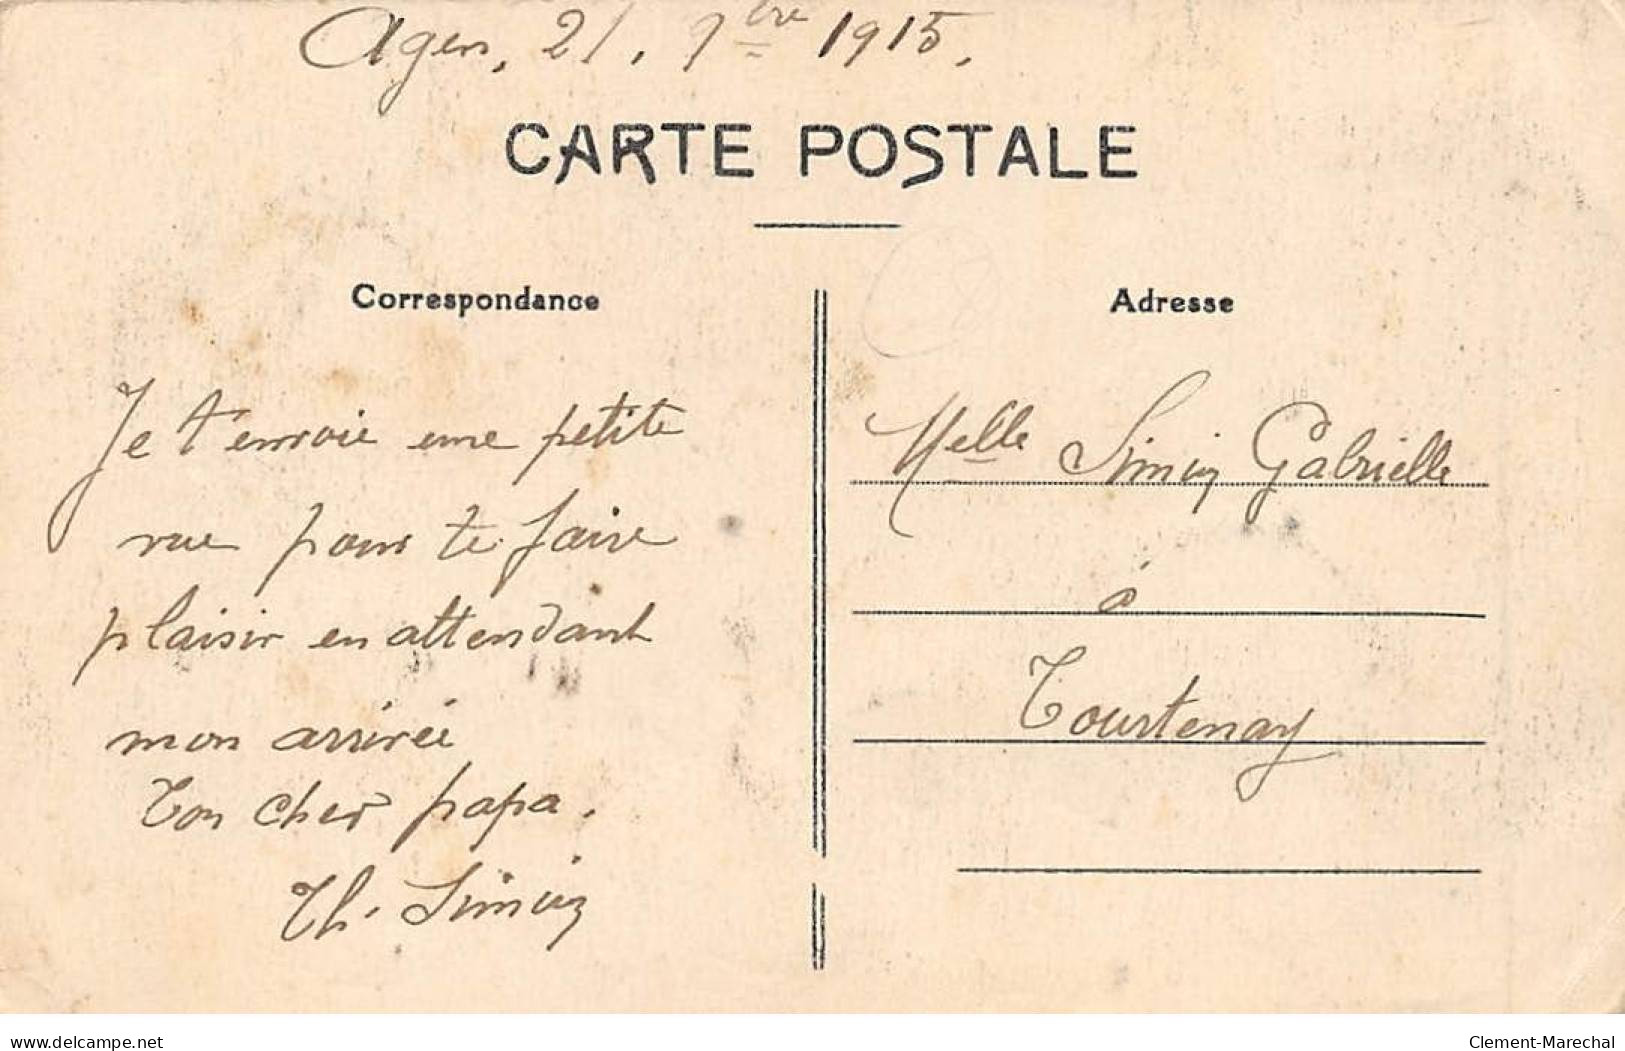 Agen, 21, 7bre 1915.
CARTE POSTALE
Correspondance
Je t'envoie une petite
vue pour te faire
plaisir en attendant
mon arrivée
Ton cher papa.
Th.
Adresse
Melle Gabrielle
à
Tourtenay
www.delcampe.net
Clement-Marechal